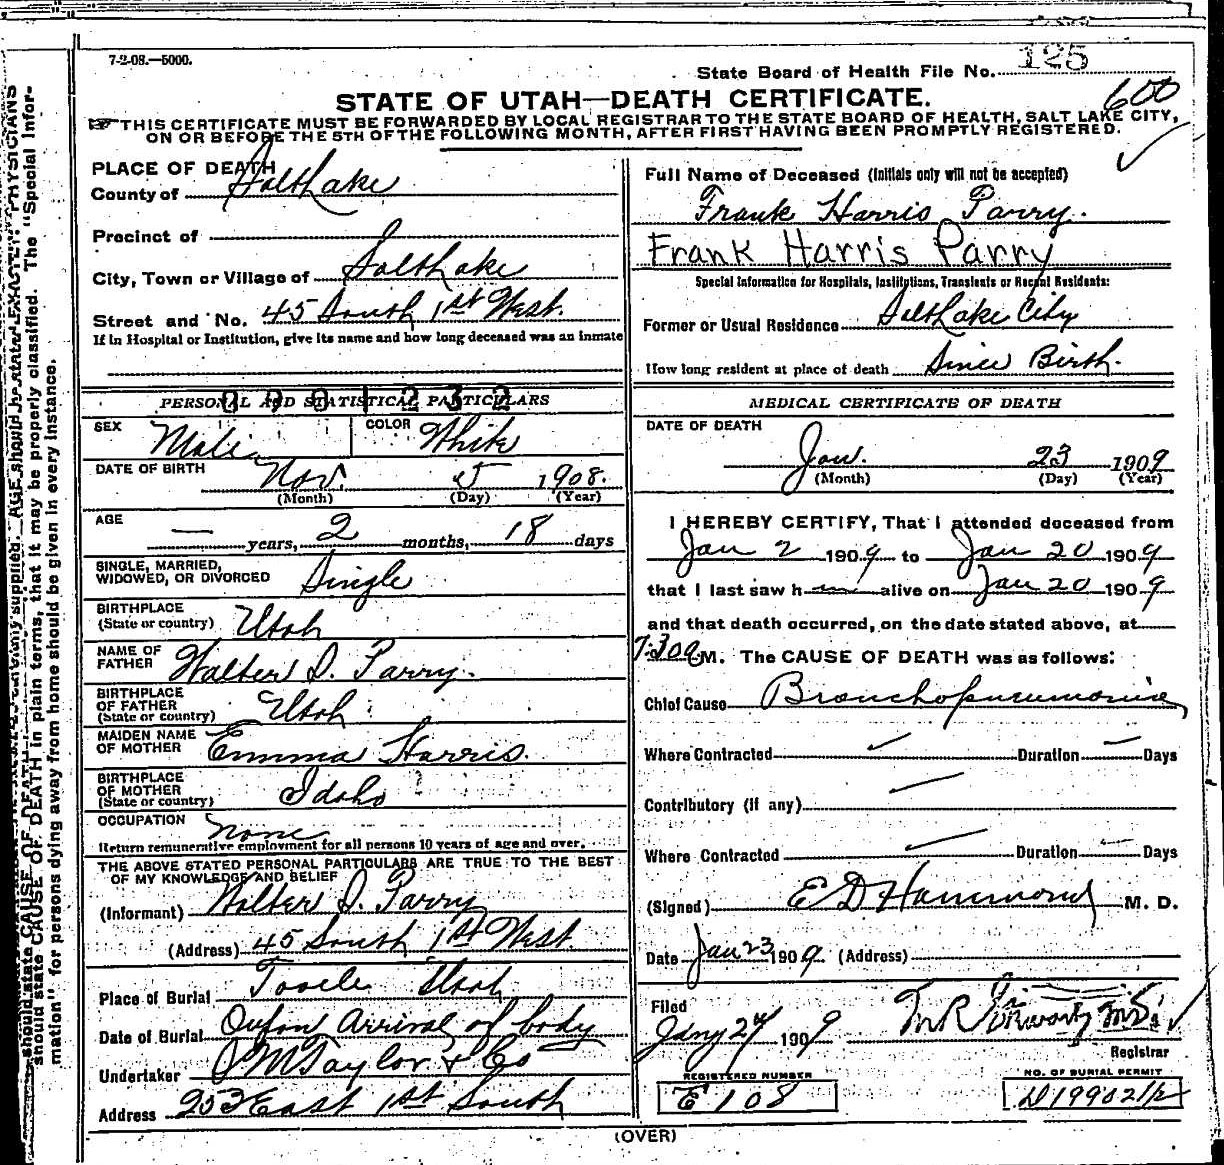 7-2-08.—5000.
State Board of Health File No. 125
600
STATE OF UTAH—DEATH CERTIFICATE.
THIS CERTIFICATE MUST BE FORWARDED BY LOCAL REGISTRAR TO THE STATE BOARD OF HEALTH, SALT LAKE CITY,
ON OR BEFORE THE 5TH OF THE FOLLOWING MONTH, AFTER FIRST HAVING BEEN PROMPTLY REGISTERED.
PLACE OF DEATH
County of Salt Lake
Precinct of
City, Town or Village of Salt Lake
Street and No. 45 South 1st West.
If in Hospital or Institution, give its name and how long deceased was an inmate
0901232
PERSONAL AND STATISTICAL PARTICULARS
SEX Male COLOR White
DATE OF BIRTH Nov. 5 1908.
(Month) (Day) (Year)
AGE
— years, 2 months, 18 days
SINGLE, MARRIED,
WIDOWED, OR DIVORCED Single
BIRTHPLACE
(State or country) Utah
NAME OF
FATHER Walter D. Parry.
BIRTHPLACE
OF FATHER
(State or country) Utah
MAIDEN NAME
OF MOTHER Emma Harris.
BIRTHPLACE
OF MOTHER
(State or country) Idaho
OCCUPATION none
Return remunerative employment for all persons 10 years of age and over.
THE ABOVE STATED PERSONAL PARTICULARS ARE TRUE TO THE BEST
OF MY KNOWLEDGE AND BELIEF
(Informant) Walter D. Parry
(Address) 45 South 1st West
Place of Burial Tooele Utah
Date of Burial Upon Arrival of body
Undertaker S M Taylor & Co
Address 253 East 1st South
Full Name of Deceased (Initials only will not be accepted)
Frank Harris Parry.
Frank Harris Parry
Special Information for Hospitals, Institutions, Transients or Recent Residents:
Former or Usual Residence Salt Lake City
How long resident at place of death Since Birth.
MEDICAL CERTIFICATE OF DEATH
DATE OF DEATH
Jan. 23 1909
(Month) (Day) (Year)
I HEREBY CERTIFY, That I attended deceased from
Jan 2 1909 to Jan 20 1909
that I last saw h im alive on Jan 20 1909
and that death occurred, on the date stated above, at
7:30 a. M. The CAUSE OF DEATH was as follows:
Chief Cause Bronchopneumonia
Where Contracted Duration — Days
Contributory (if any)
Where Contracted Duration — Days
(Signed) E D Hammond M. D.
Date Jan 23 1909 (Address)
Filed
Jany 24 1909
Registrar
REGISTERED NUMBER
E 108
NO. OF BURIAL PERMIT
D 19902 1/2
(OVER)
should state CAUSE OF DEATH in plain terms, that it may be properly classified. The "Special Infor-
mation" for persons dying away from home should be given in every instance.